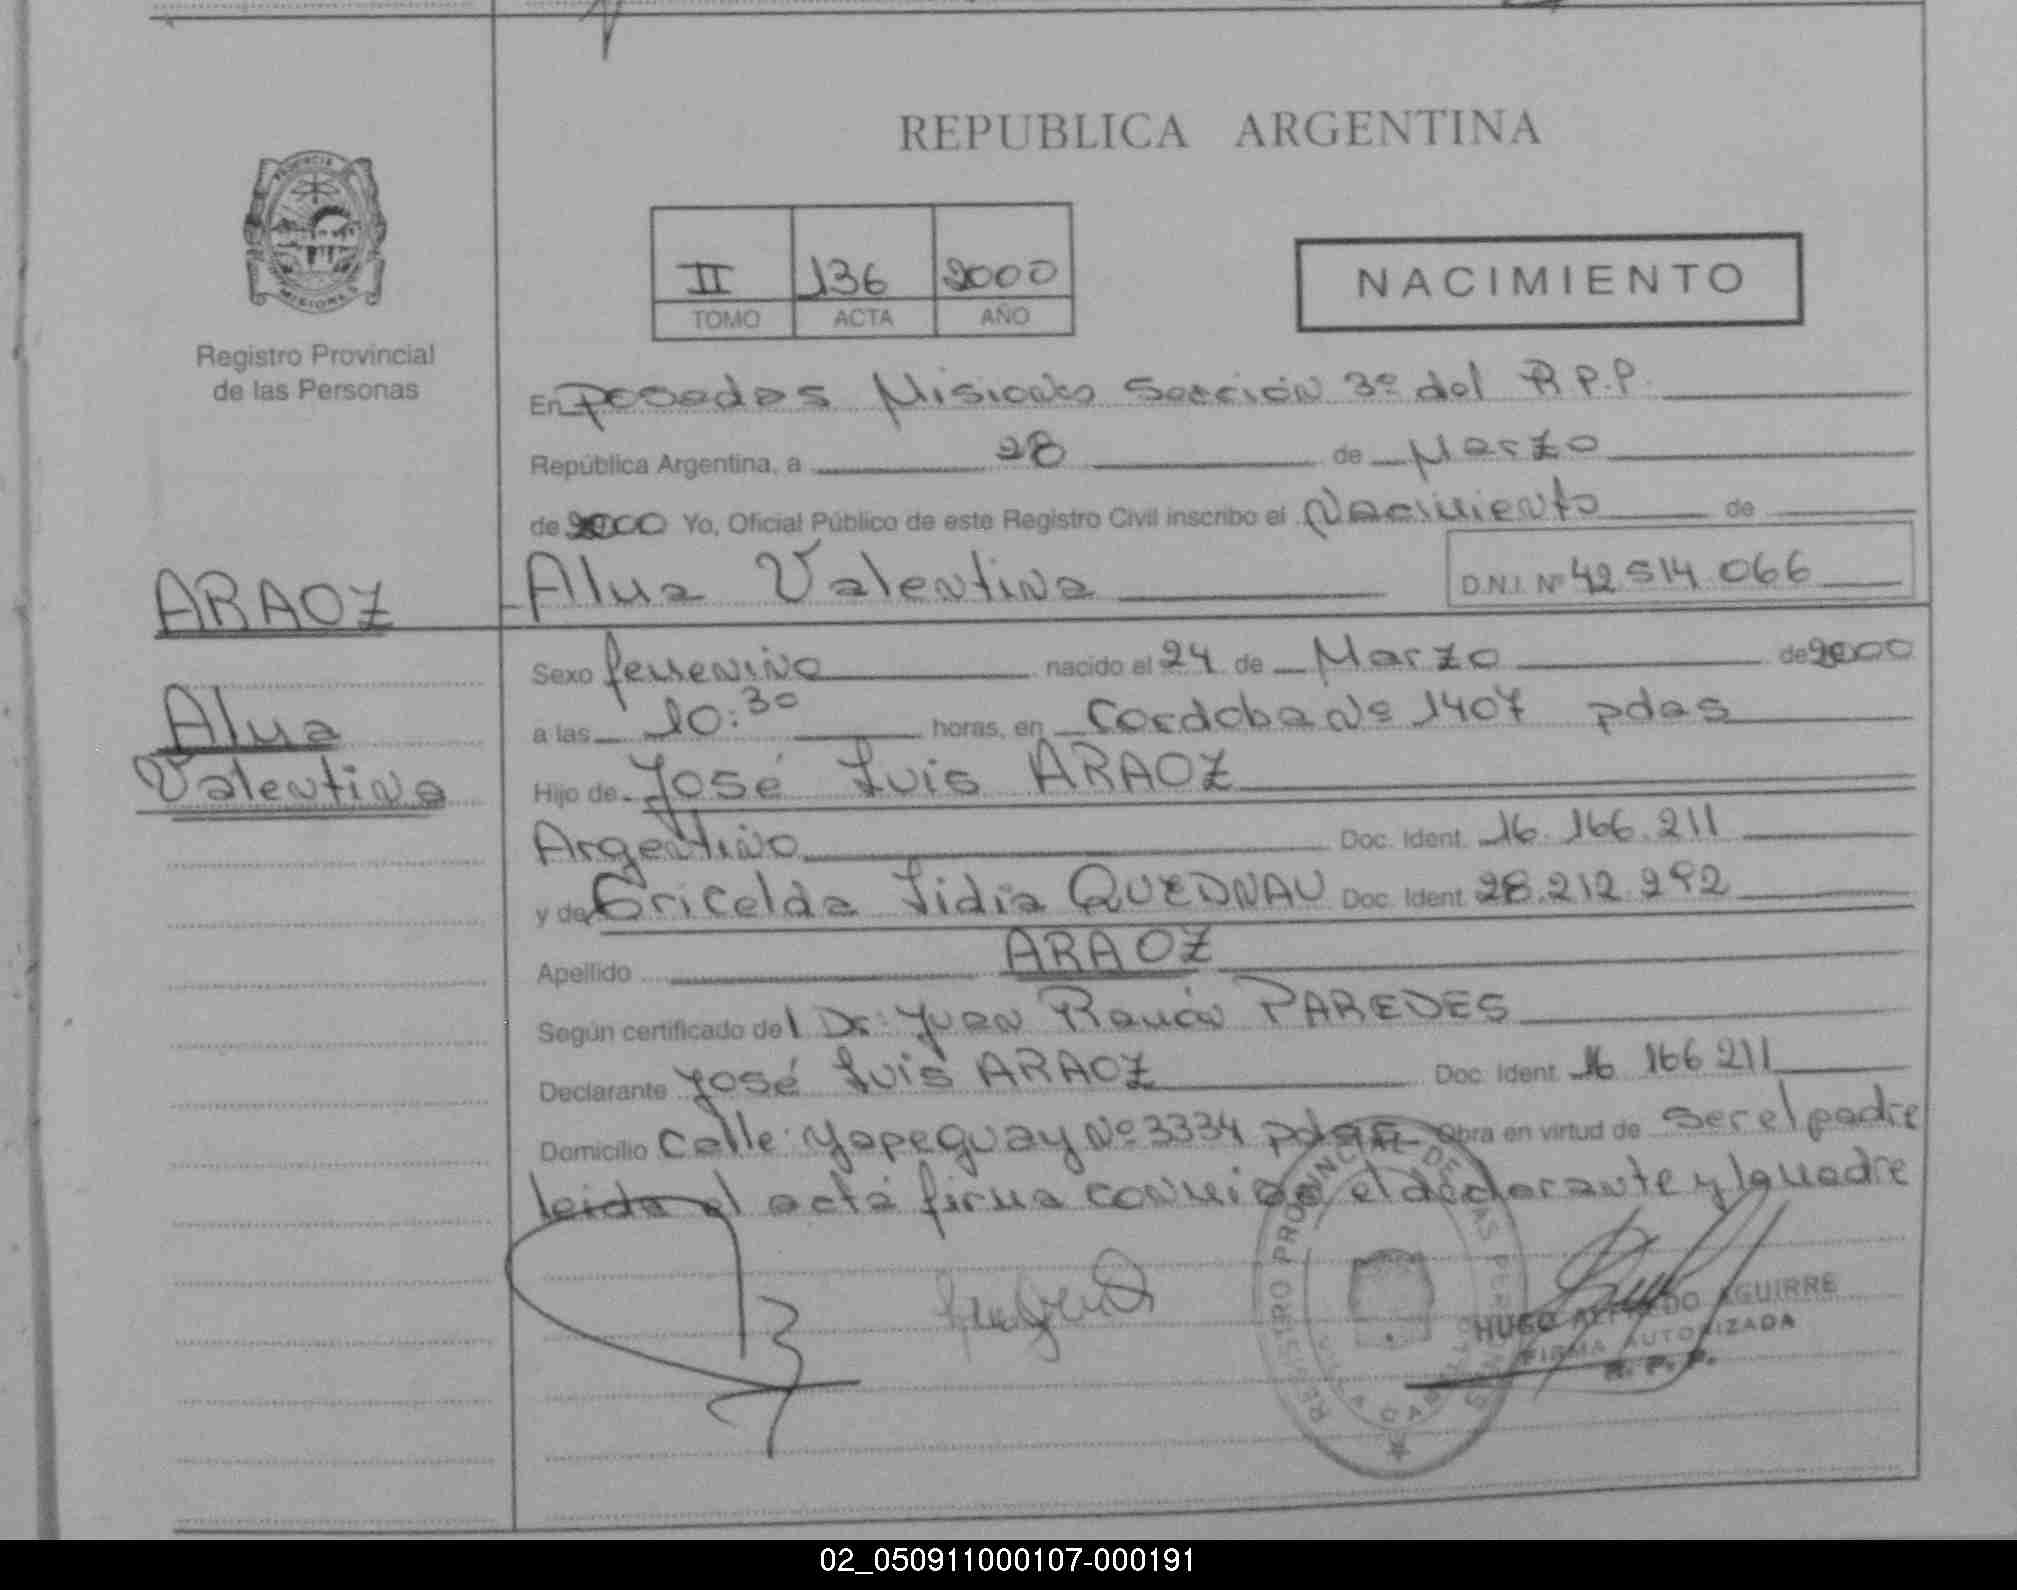 REPUBLICA ARGENTINA
PROVINCIA
MISIONES
Registro Provincial
de las Personas
II 136 2000
TOMO ACTA AÑO
NACIMIENTO
En Posadas Misiones Sección 3º del R.P.P.
República Argentina, a 28 de Marzo
de 2000 Yo, Oficial Público de este Registro Civil inscribo el Nacimiento de
ARAOZ
Alua Valentina D.N.I. Nº 42 514 066
Sexo femenino nacido el 24 de Marzo de 2000
Alua
a las 10:30 horas, en Cordoba Nº 1407 pdas
Valentina
Hijo de José Luis ARAOZ
Argentino Doc. Ident. 16.166.211
y de Gricelda Lidia QUEDNAU Doc. Ident. 28.212.292
Apellido ARAOZ
Según certificado del Dr: Juan Ramón PAREDES
Declarante José Luis ARAOZ Doc. Ident. 16 166 211
Domicilio Calle: Yapeguay Nº 3334 pdas Obra en virtud de ser el padre
leida el acta firma conmigo el declarante y la madre
REGISTRO PROVINCIAL DE LAS PERSONAS
VILLA CABELLO
HUGO ALFREDO AGUIRRE
FIRMA AUTORIZADA
R. P. P.
02_050911000107-000191